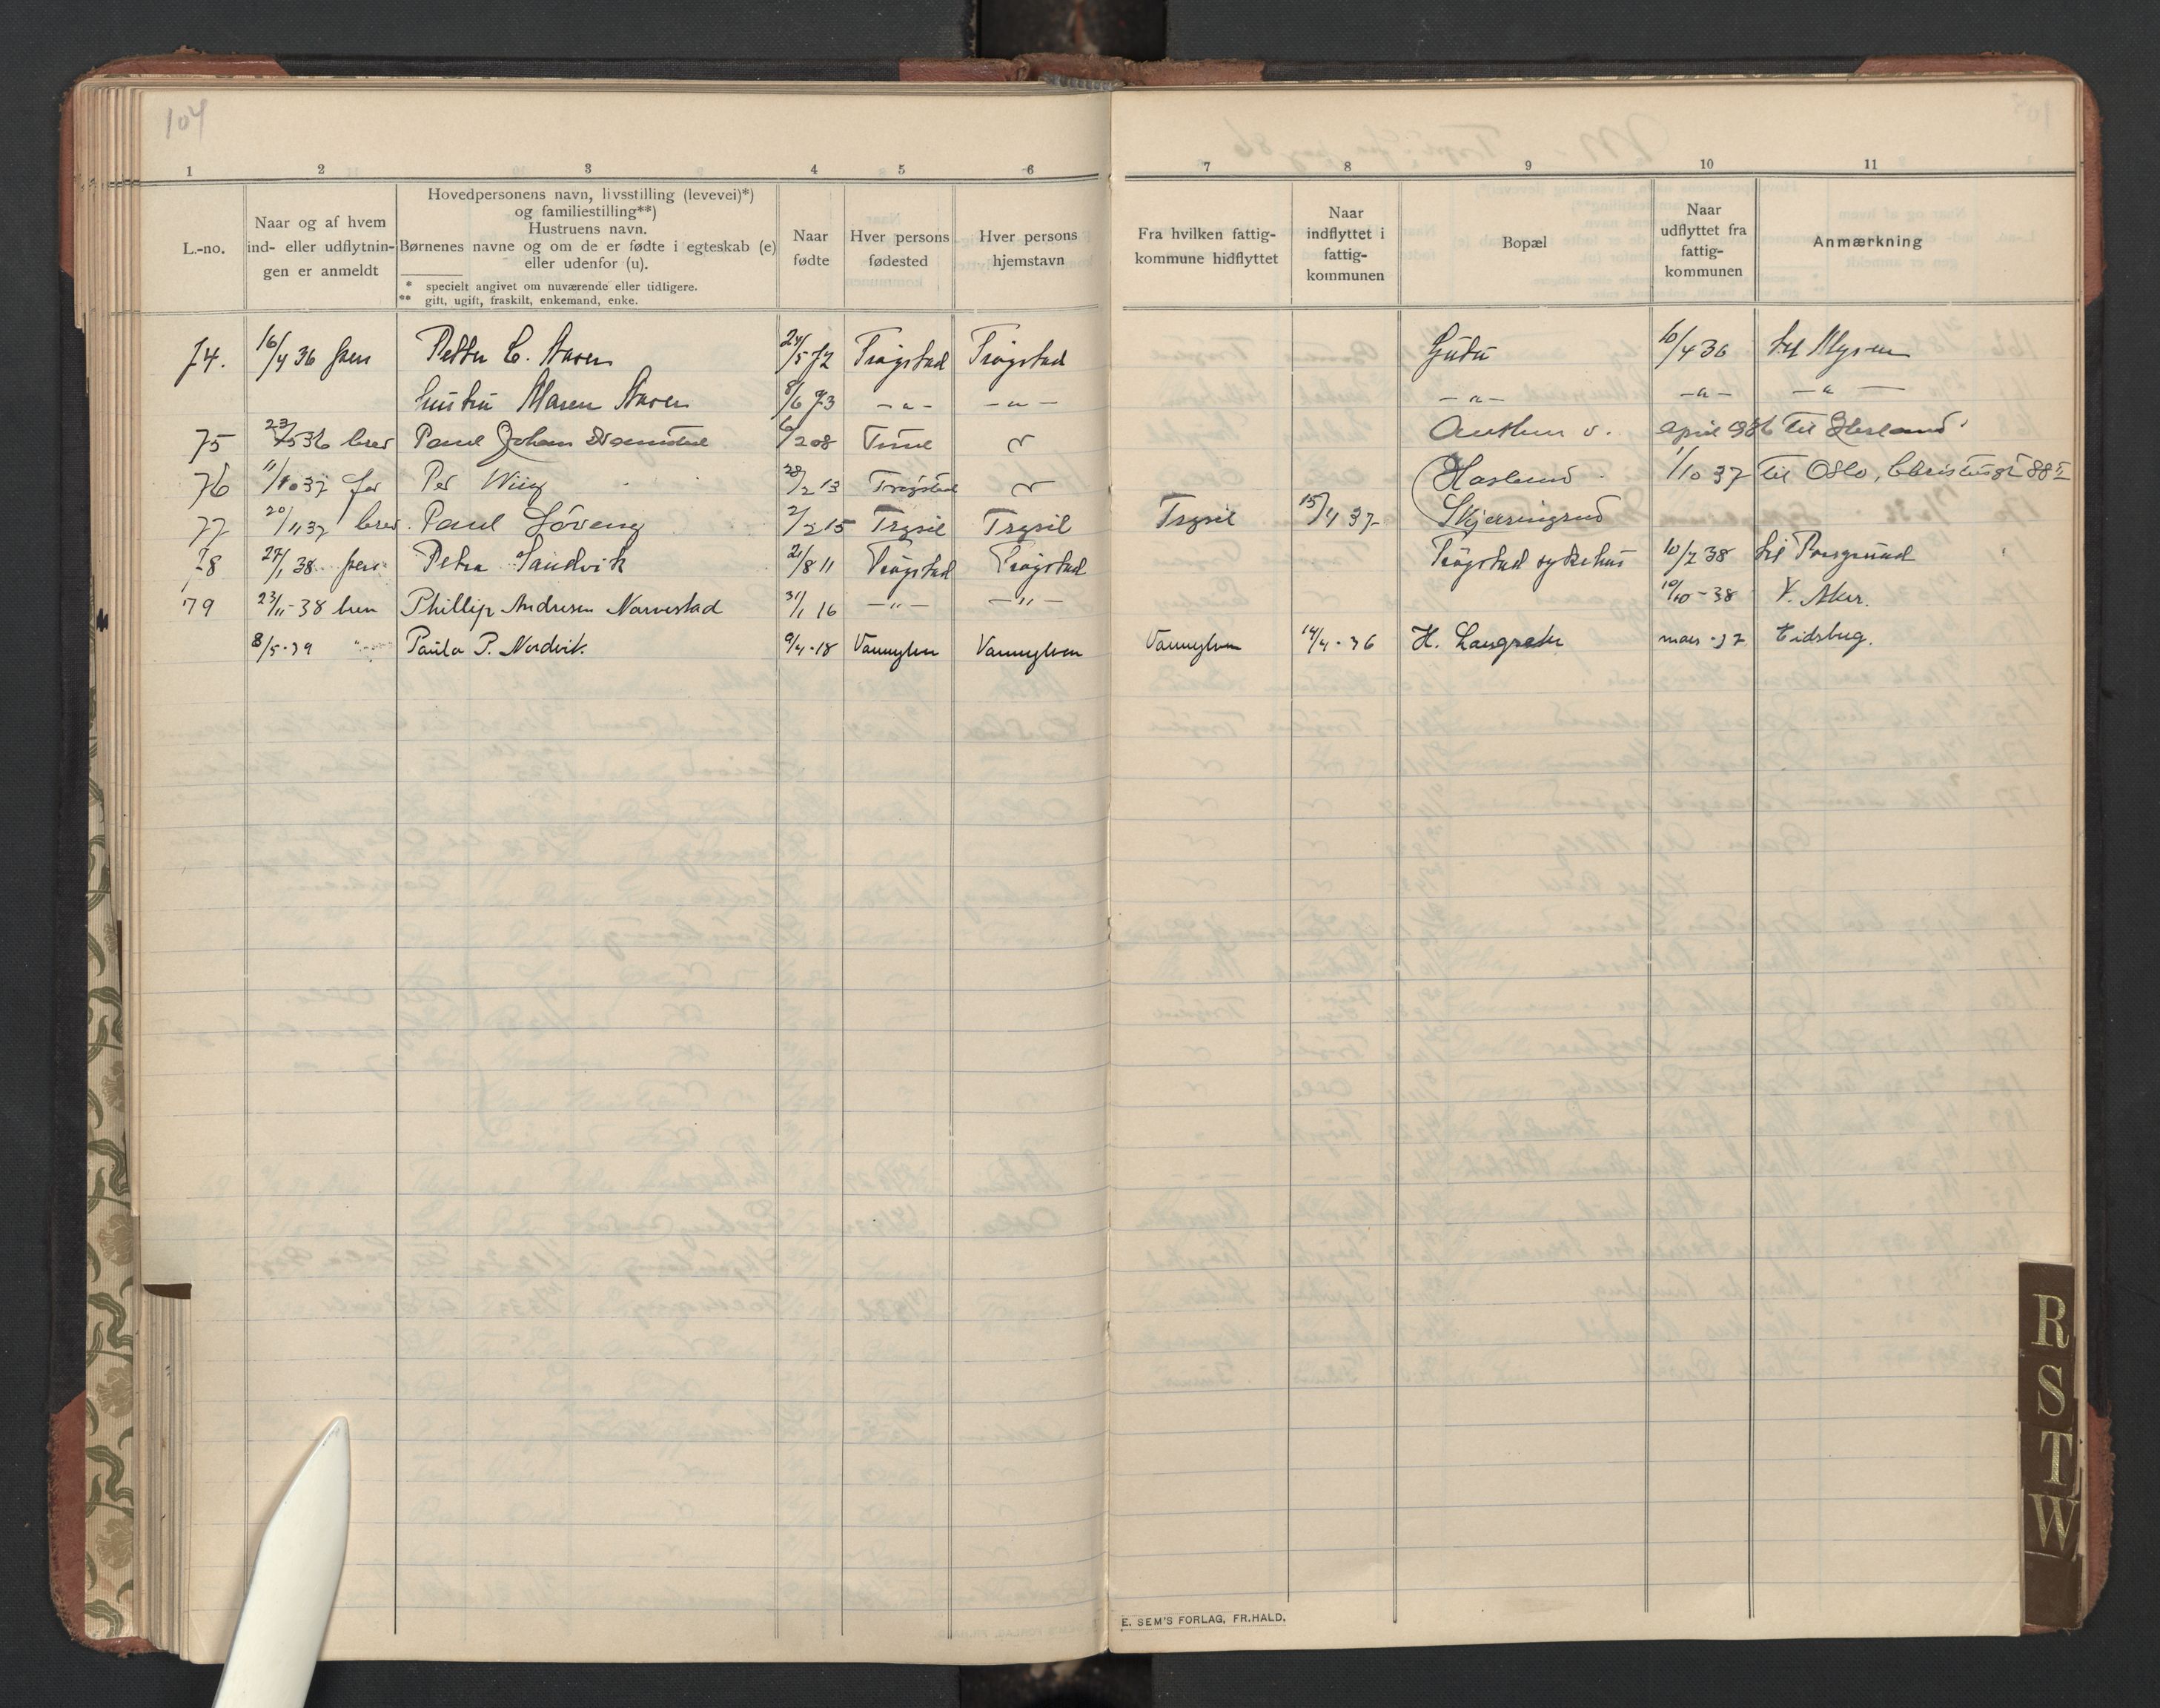 104
1 2 3 4 5 6 7 8 9 10 11
L.-no.
Naar og af hvem
ind- eller udflytnin-
gen er anmeldt
Hovedpersonens navn, livsstilling (levevei)*)
og familiestilling**)
Hustruens navn.
Børnenes navne og om de er fødte i egteskab (e)
eller udenfor (u).
* specielt angivet om nuværende eller tidligere.
** gift, ugift, fraskilt, enkemand, enke.
Naar
fødte
Hver persons
fødested
Hver persons
hjemstavn
Fra hvilken fattig-
kommune hidflyttet
Naar
indflyttet i
fattig-
kommunen
Bopæl
Naar
udflyttet fra
fattig-
kommunen
Anmærkning
74. 16/4 36 pers Petter C. Aasen 24/5 72 Trøgstad Trøgstad Gutu 16/4 36 til Mysen
hustru Maren Aasen 8/6 73 -"- -"- -"- -"- -"-
75 23/5 36 brev Paul Johan 6/2 08 april 936 til
76 11/10 37 far Per Wiig 28/2 13 Trøgstad Haslund 1/10 37 til Oslo, 88 II
77 20/11 37 brev. Paul Løveng 2/2 15 Trysil Trysil Trysil 15/4 37 Skjærringrud
78 27/1 38 pers Petra Sandvik 21/8 11 Trøgstad Trøgstad Trøgstad sykehus 10/2 38 til Porsgrund
79 23/11-38 brev Phillip Andresen Narvestad 31/1 16 -"- -"- 10/10-38 V. Aker.
8/5-39 " Paula P. Nordvik. 9/4-18 Vannylven Vannylven Vannylven 14/4-36 H. Langsæter mars -37 Eidsberg.
E. SEM'S FORLAG, FR.HALD.
R
S
T
W